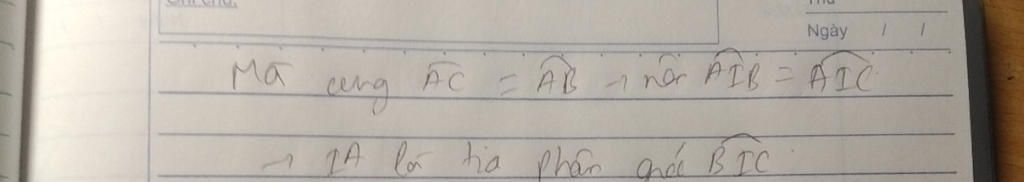 Ghi chú:
Thứ
Ngày / /
Mà cung AC = AB → nên AIB = AIC
→ IA là tia phân giác BIC